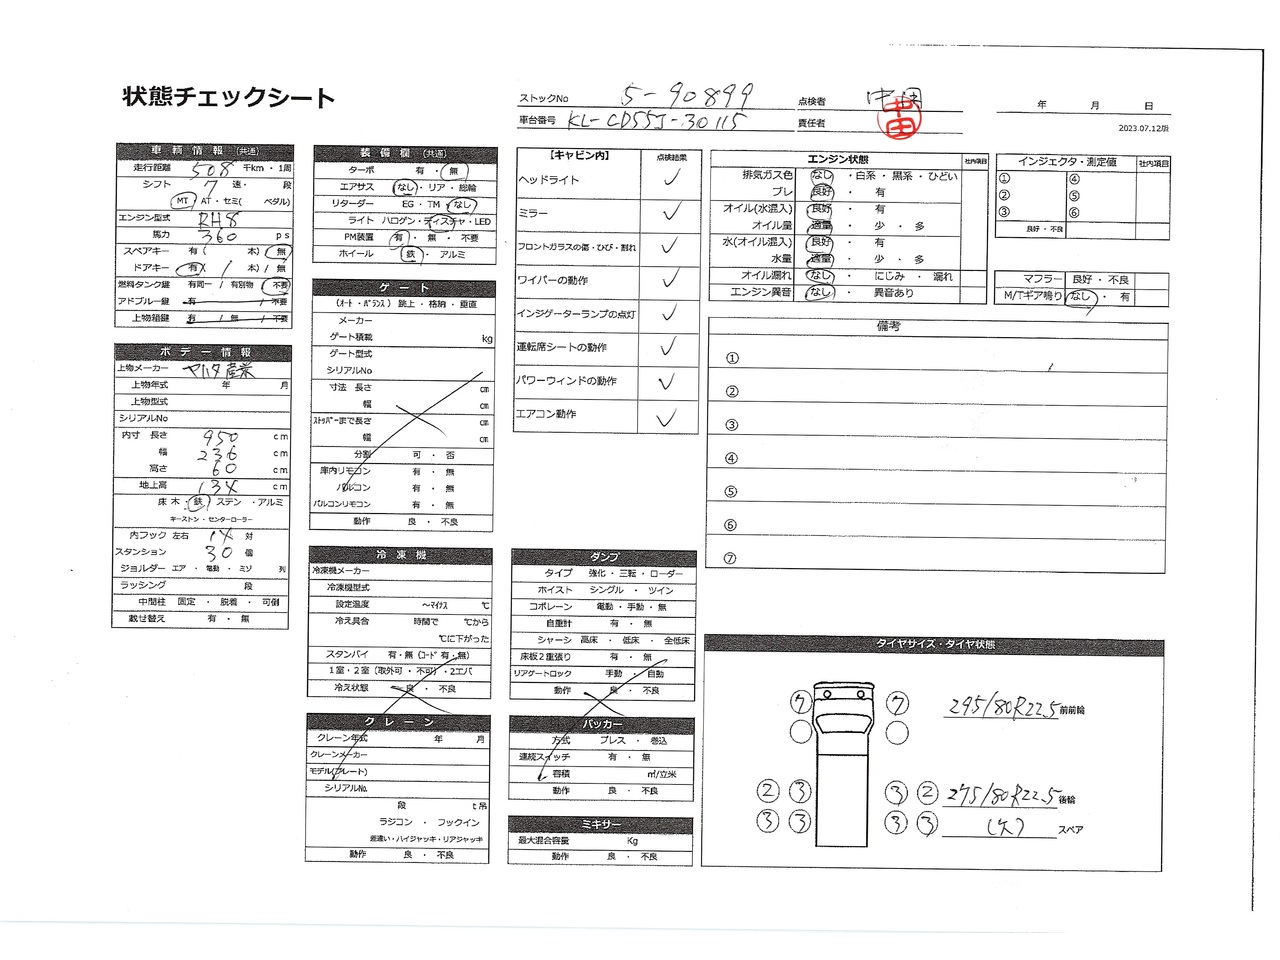 状態チェックシート
ストックNo 5-90899
車台番号 KL-CD55J-30115
点検者
責任者
年 月 日
2023.07.12版
車輌情報 (共通)
走行距離 508 千km・1周
シフト 7 速・ 段
MT AT・セミ( ペダル)
エンジン型式 RH8
馬力 360 ps
スペアキー 有( 本)/ 無
ドアキー 有( / 本)/ 無
燃料タンク鍵 有同一 / 有別物 / 不要
アドブルー鍵 有 / 不要
上物箱鍵 有 / 無 / 不要
ボデー情報
上物メーカー マルタ産業
上物年式 年 月
上物型式
シリアルNo
内寸 長さ 950 cm
幅 236 cm
高さ 60 cm
地上高 134 cm
床 木・鉄・ステン・アルミ
キーストン・センターローラー
内フック 左右 14 対
スタンション 30 個
ジョルダー エア・電動・ミゾ 列
ラッシング 段
中間柱 固定・脱着・可倒
載せ替え 有・無
装備欄 (共通)
ターボ 有・無
エアサス なし・リア・総輪
リターダー EG・TM・なし
ライト ハロゲン・ディスチャ・LED
PM装置 有・無・不要
ホイール 鉄・アルミ
ゲート
(オート・バランス) 跳上・格納・垂直
メーカー
ゲート積載 kg
ゲート型式
シリアルNo
寸法 長さ cm
幅 cm
ストッパーまで長さ cm
幅 cm
分割 可・否
庫内リモコン 有・無
バルコン 有・無
バルコンリモコン 有・無
動作 良・不良
冷凍機
冷凍機メーカー
冷凍機型式
設定温度 ～マイナス ℃
冷え具合 時間で ℃から
℃に下がった
スタンバイ 有・無(コード 有・無)
1室・2室(取外可・不可)・2エバ
冷え状態 良・不良
クレーン
クレーン年式 年 月
クレーンメーカー
モデル(プレート)
シリアルNo.
段 t吊
ラジコン・フックイン
差違い・ハイジャッキ・リアジャッキ
動作 良・不良
【キャビン内】 点検結果
ヘッドライト ✓
ミラー ✓
フロントガラスの傷・ひび・割れ ✓
ワイパーの動作 ✓
インジゲーターランプの点灯 ✓
運転席シートの動作 ✓
パワーウィンドの動作 ✓
エアコン動作 ✓
ダンプ
タイプ 強化・三転・ローダー
ホイスト シングル・ツイン
コボレーン 電動・手動・無
自重計 有・無
シャーシ 高床・低床・全低床
床板2重張り 有・無
リアゲートロック 手動・自動
動作 良・不良
パッカー
方式 プレス・巻込
連続スイッチ 有・無
容積 ㎥/立米
動作 良・不良
ミキサー
最大混合容量 Kg
動作 良・不良
エンジン状態 社内項目
排気ガス色 なし・白系・黒系・ひどい
ブレ 良好・有
オイル(水混入) 良好・有
オイル量 適量・少・多
水(オイル混入) 良好・有
水量 適量・少・多
オイル漏れ なし・にじみ・漏れ
エンジン異音 なし・異音あり
インジェクタ・測定値 社内項目
① ④
② ⑤
③ ⑥
良好・不良
マフラー 良好・不良
M/Tギア鳴り なし・有
備考
①
②
③
④
⑤
⑥
⑦
タイヤサイズ・タイヤ状態
7 7 295/80R22.5 前前輪
2 3 3 2 275/80R22.5 後輪
3 3 3 3 (欠) スペア